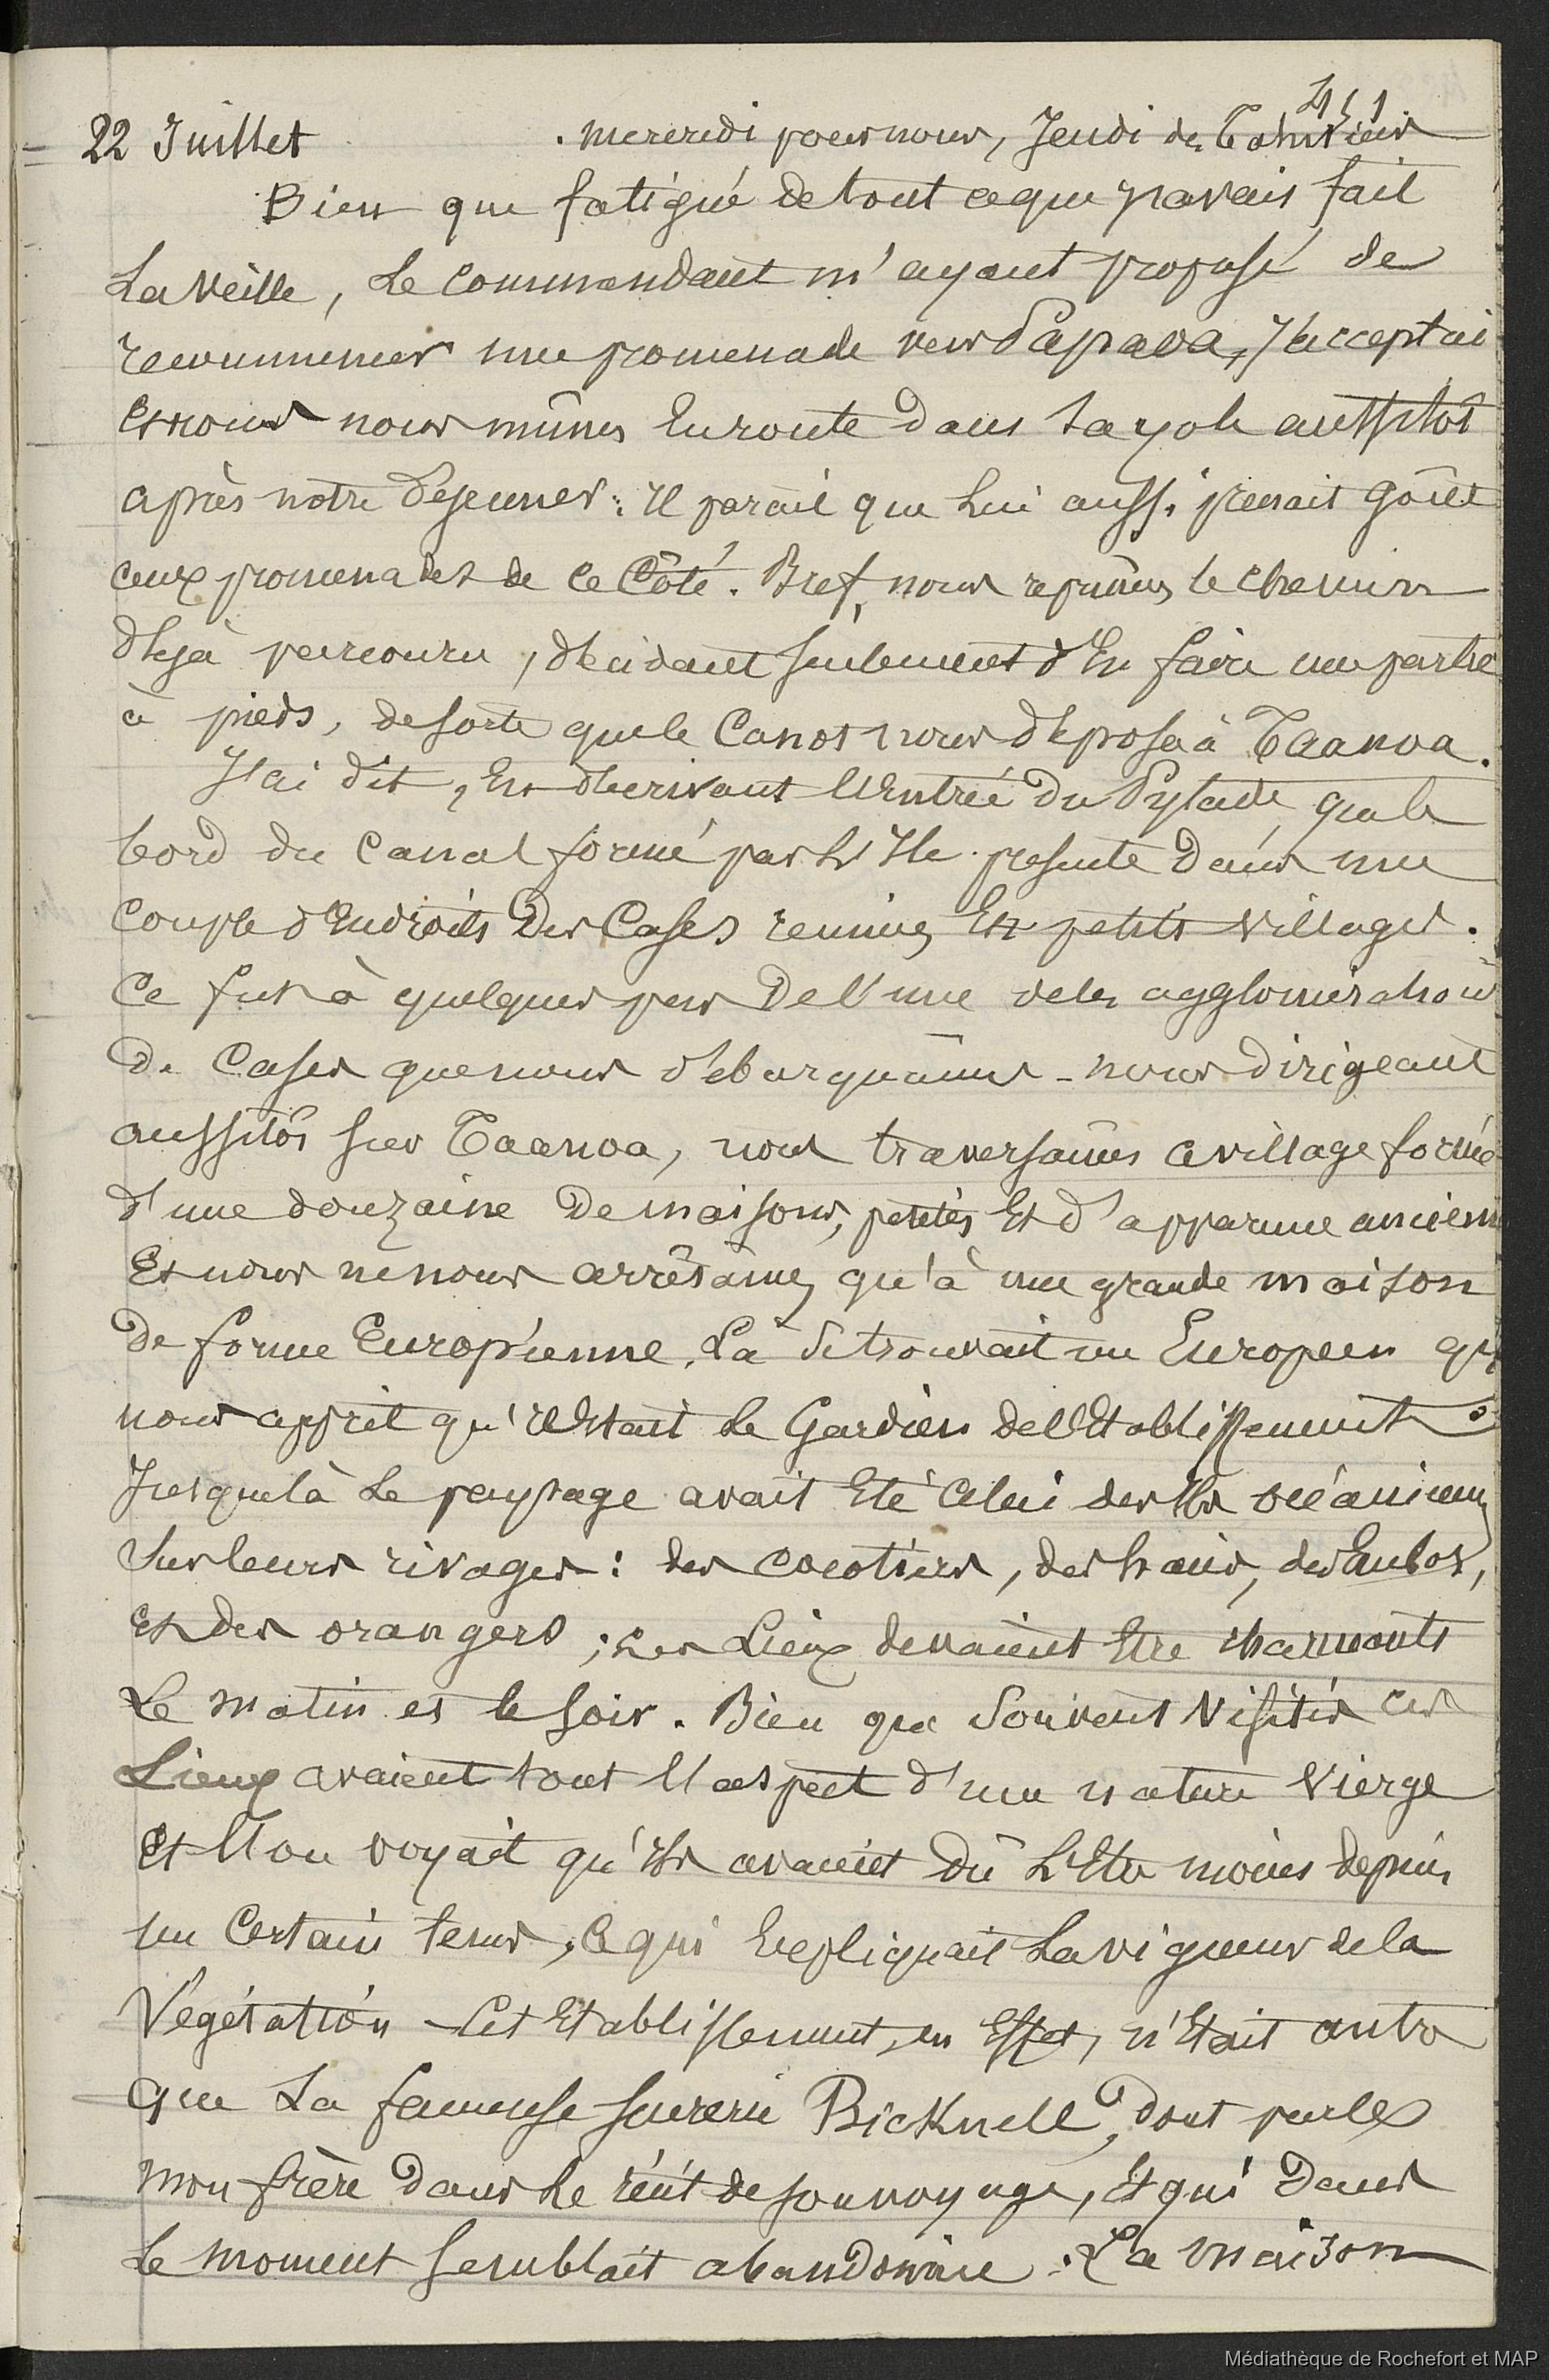 451
22 Juillet . mercredi pour nous, Jeudi des Tahitiens
Bien que fatigué de tout ce que j'avais fait
La veille, Le commandant m'ayant proposé de
recommencer une promenade vers Papaoa, J'acceptai
et nous nous mîmes En route dans sa yole aussitôt
après notre déjeuner : Il parait que Lui aussi prenait goût
aux promenades de ce Côté. Bref, nous reprîmes le chemin
déjà parcouru, décidant seulement d'En faire une partie
à pieds, de sorte que le Canot nous déposa à Taanoa.
J'ai dit, En décrivant l'Entrée du Pylade, que le
bord du Canal formé par L'Ile presente dans une
couple d'Endroits Des Cases reunies En petits villages.
Ce fut à quelques pas De l'une de les agglomérations
De Cases que nous débarquâmes - nous dirigeant
aussitôt sur Taanoa, nous traversâmes ce village formé
d'une douzaine De maisons, petites Et d'apparence ancienne
Et nous ne nous arrêtâmes qu'à une grande maison
De forme Européenne. Là se trouvait un Européen qui
nous apprit qu'il Etait Le Gardien de l'Etablissement.
Jusque là Le paysage avait Eté Celui des Iles océaniennes
sur leurs rivages : des cocotiers, des haies, des
Et des orangers ; Les Lieux devaient Etre charmants
Le matin et le soir. Bien que Souvent visités ces
Lieux avaient tout l'aspect d'une nature vierge
Et l'on voyait qu'ils avaient Dû L'Etre moins depuis
un Certain tems, Ce qui Expliquait La vigueur de la
Végétation - Cet Etablissement, en Effet, n'Etait autre
que La fameuse sucrerie Bicknell, dont parle
mon frère Dans Le récit de son voyage, Et qui Dans
Le moment semblait abandonnée. La maison
Médiathèque de Rochefort et MAP